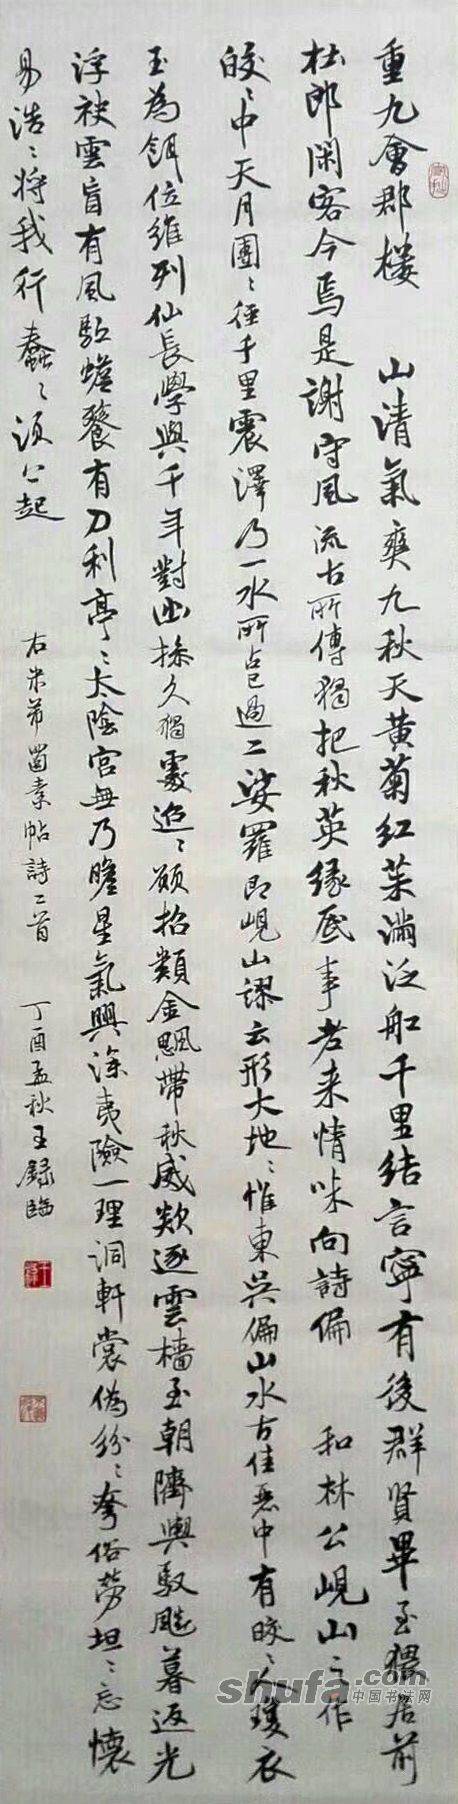 重九會郡樓　山清氣爽九秋天黃菊紅茱滿泛船千里結言寧有後群賢畢至猥居前
杜郎閑客今焉是謝守風流古所傳獨把秋英緣底事老来情味向詩偏　和林公峴山之作
皎〻中天月團〻徑千里震澤乃一水所占已過二娑羅即峴山謬云形大地〻惟東吳偏山水古佳麗中有皎〻人瓊衣
玉為餌位維列仙長學與千年對幽操久獨處迢〻願招類金颸帶秋威欻逐雲檣至朝隮輿馭飈暮返光
浮袂雲盲有風驅蟾餮有刀利亭〻太陰宮無乃瞻星氣興深夷險一理洞軒裳偽紛〻夸俗勞坦〻忘懷
易浩〻將我行蠢〻須公起
右米芾蜀素帖詩二首　丁酉孟秋王錄臨
shufa.com
中国书法网